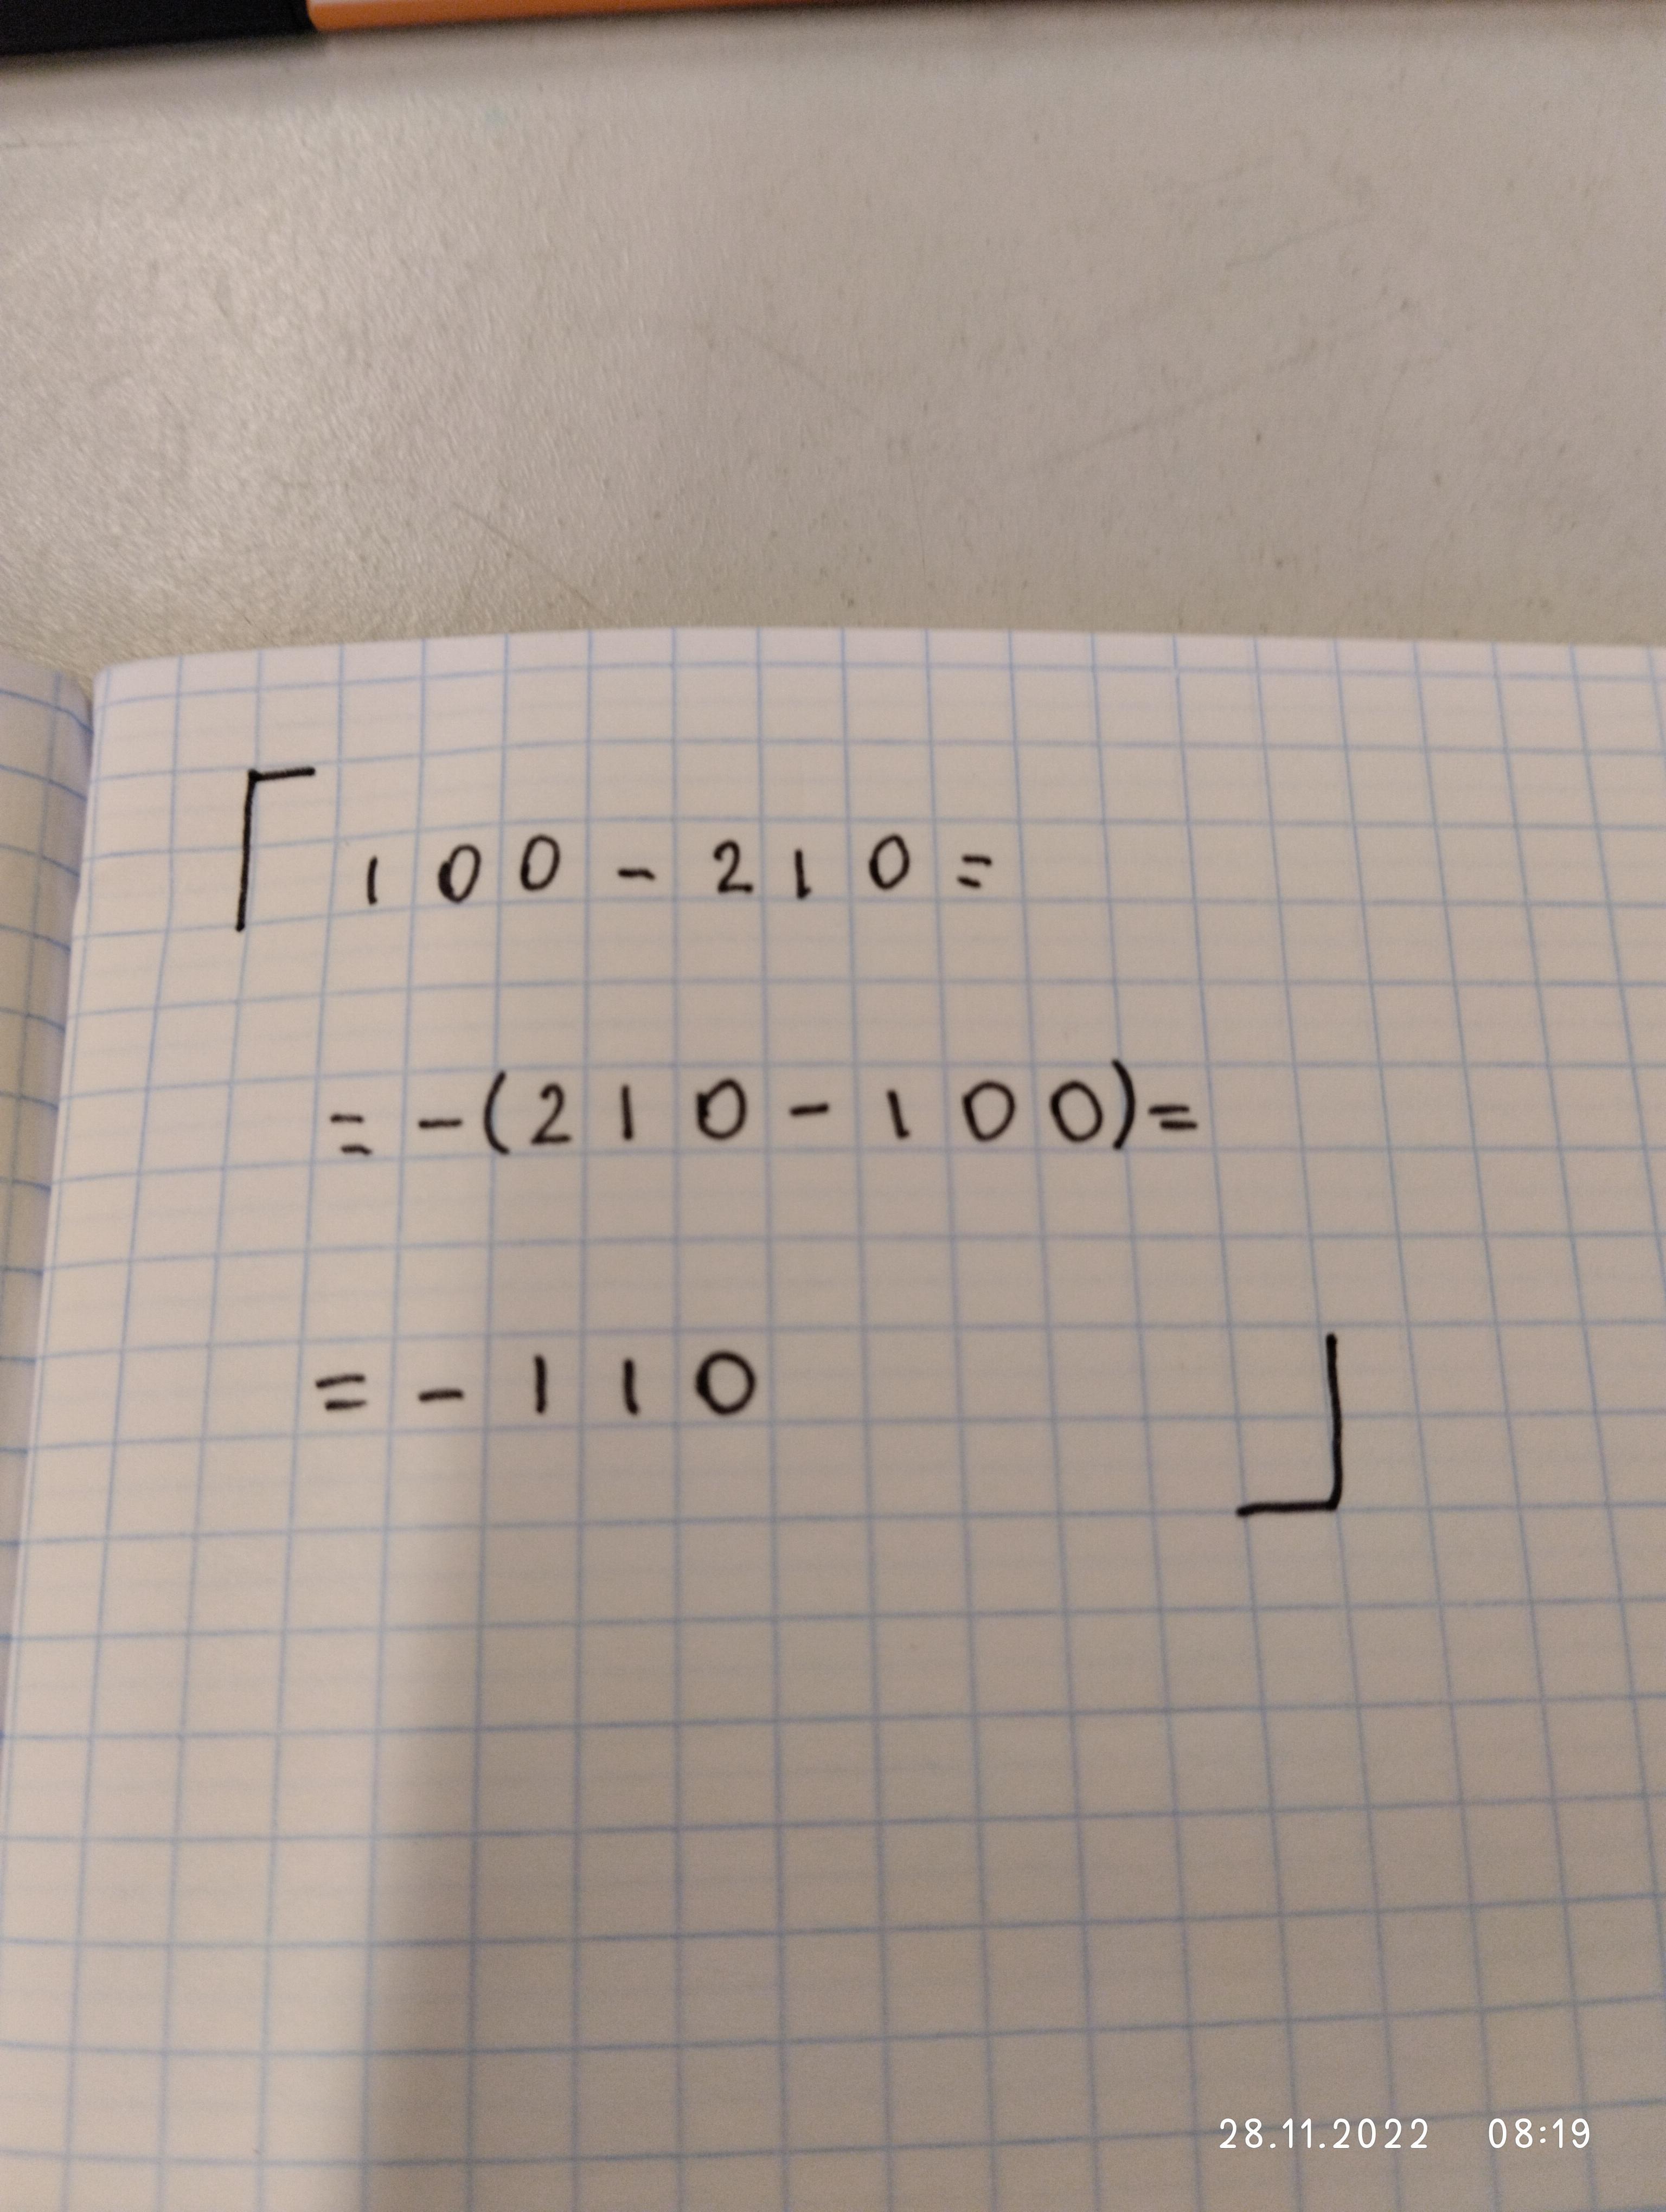 100-210=
=-(210-100)=
=-110
28.11.2022 08:19